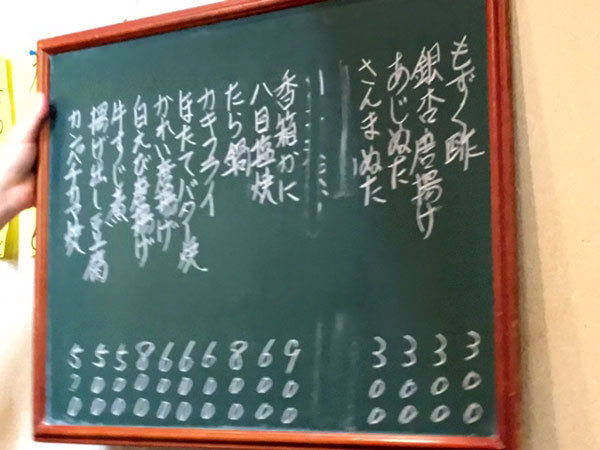 もずく酢 300
銀杏唐揚げ 300
あじぬた 300
さんまぬた 300
香箱かに 900
八目塩焼 600
たら鍋 800
カキフライ 600
ほたてバター焼 600
かれい唐揚げ 600
白えび唐揚げ 800
牛すじ煮 500
揚げ出し豆腐 500
カンパチカマ焼 500